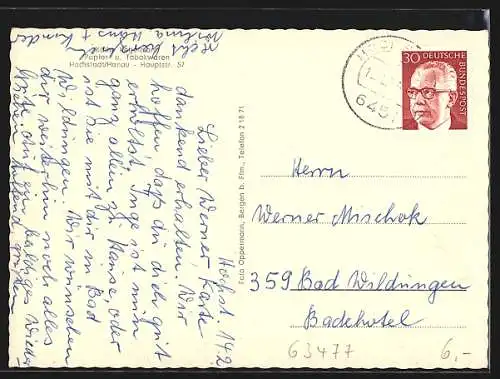 Papier u. Tabakwaren
Hochstadt/Hanau - Hauptstr. 57
Foto Oppermann, Bergen b. Ffm., Telefon 2 18 71
Hochst. 14.2.
Lieber Werner Karte
dankend erhalten. Wir
hoffen daß du dich gut
erholst. Inge ist nun
ganz allein zu Hause, oder
ist Sie mit dir in Bad
Wildungen. Wir wünschen
dir weiterhin noch alles
Gute. Auf ein baldiges Wieder
grüßen
Hans + Kinder
30 DEUTSCHE
BUNDESPOST
6457
Herrn
Werner Mischok
359 Bad Wildungen
Badehotel
63477
6,-